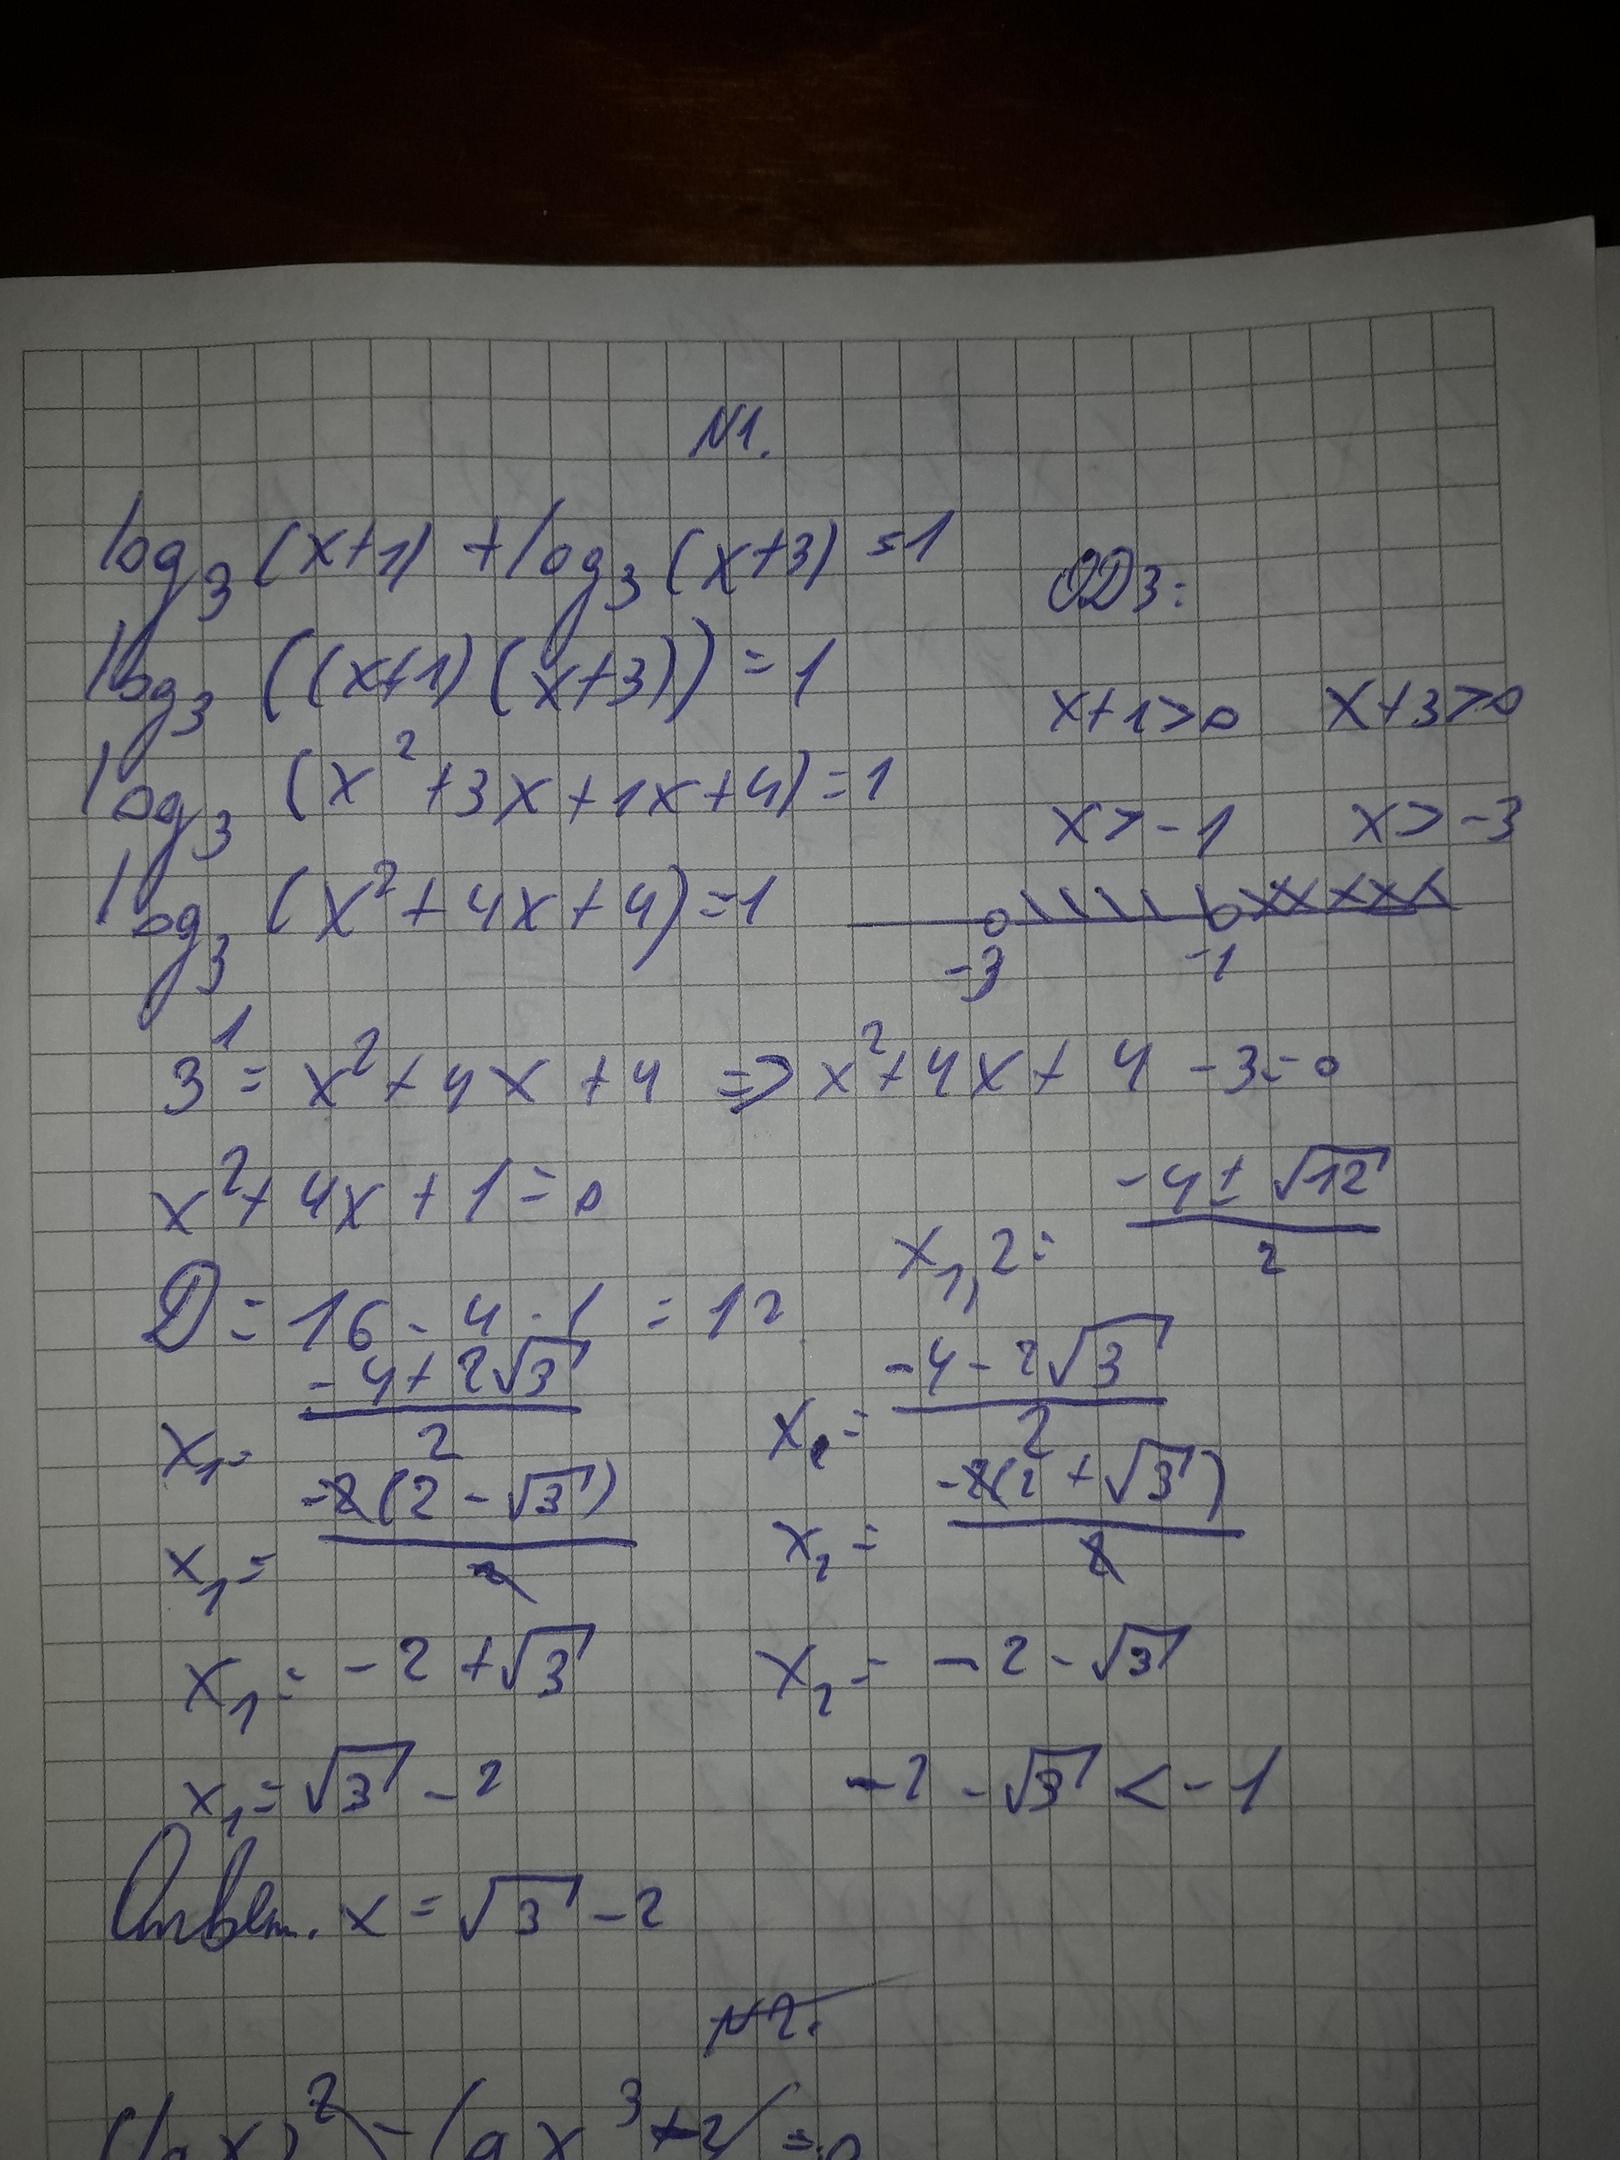 N1.
log₃(x+1) + log₃(x+3) = 1
ОДЗ:
log₃((x+1)(x+3)) = 1
x+1>0 x+3>0
log₃(x²+3x+1x+4) = 1
x>-1 x>-3
log₃(x²+4x+4) = 1
-3 -1
3¹ = x²+4x+4 => x²+4x+4-3=0
x²+4x+1=0
x₁,₂ = (-4±√12)/2
D = 16-4·1 = 12
x₁ = (-4+2√3)/2 x₂ = (-4-2√3)/2
x₁ = -2(2-√3)/2 x₂ = -2(2+√3)/2
x₁ = -2+√3 x₂ = -2-√3
x₁ = √3-2 -2-√3 < -1
Ответ. x = √3-2
N2.
(lg x)² - lg x³ +2 = 0